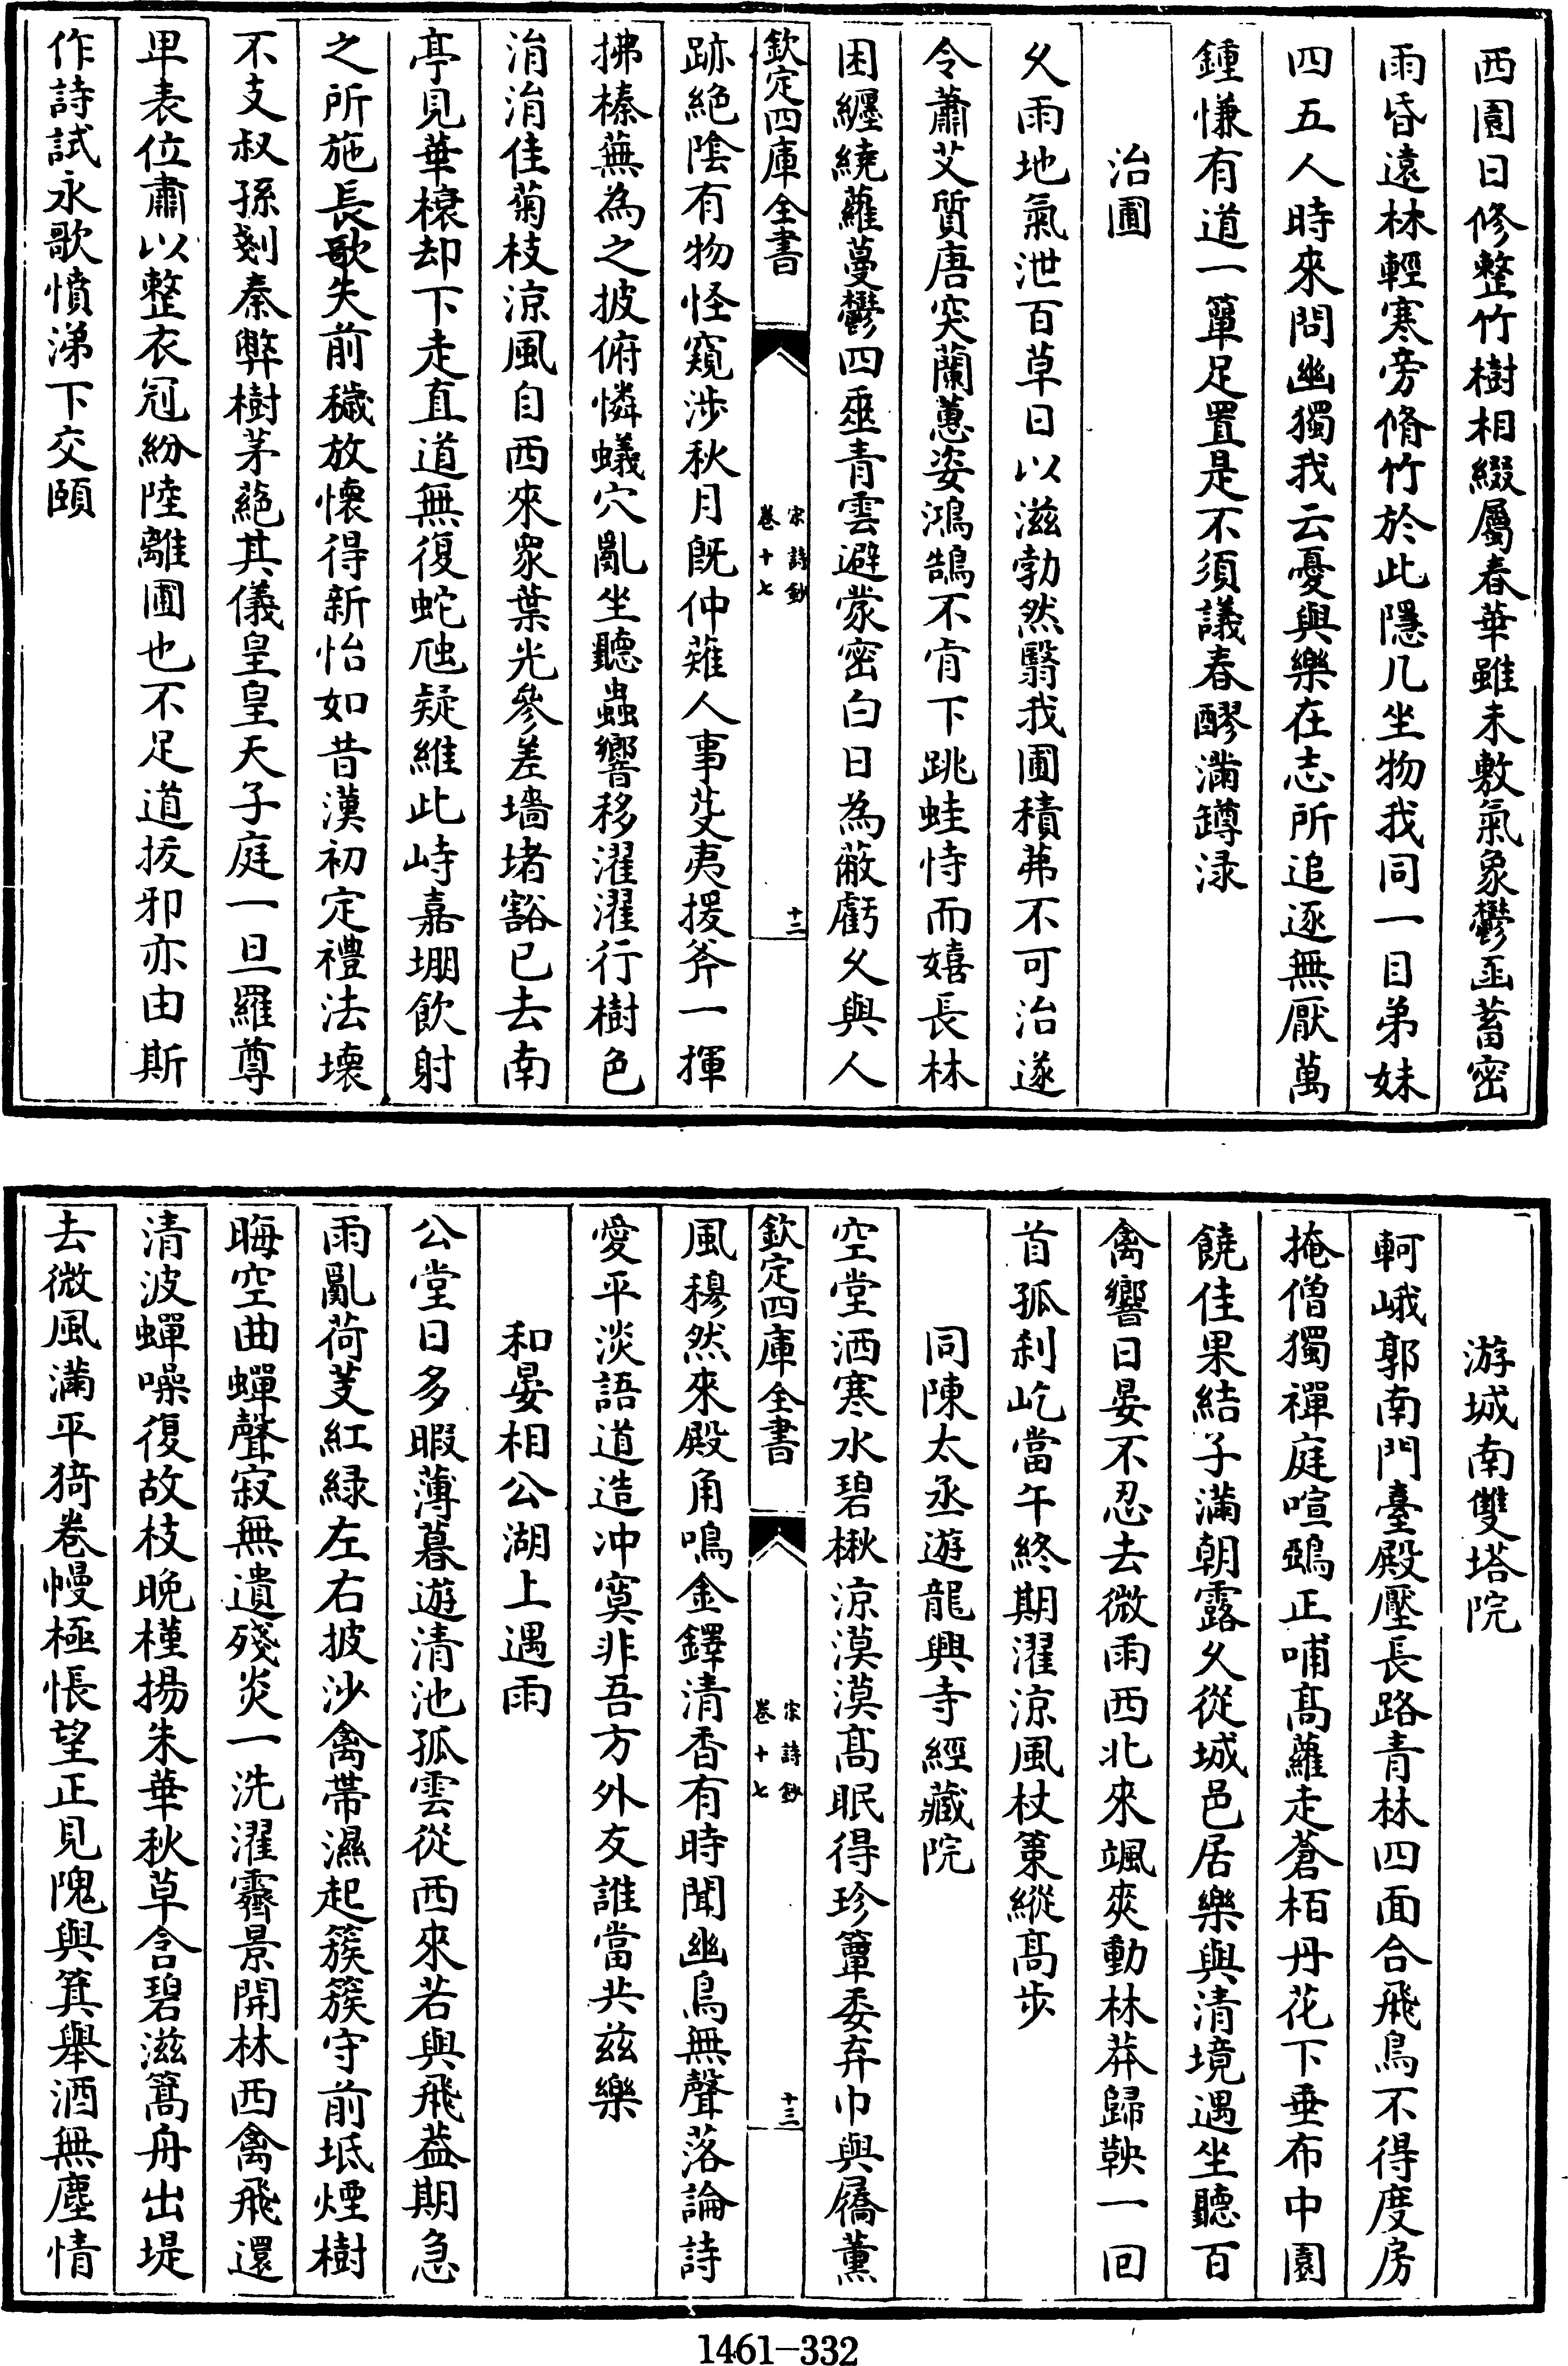 西園日修整竹樹相綴屬春華雖未敷氣象鬱函蓄密
雨昏遠林輕寒旁脩竹於此隱几坐物我同一目弟妹
四五人時來問幽獨我云憂與樂在志所追逐無厭萬
鍾慊有道一簞足置是不須議春醪滿罇渌
治圃
乆雨地氣泄百草日以滋勃然翳我圃積茀不可治遂
令蕭艾質唐突蘭蕙姿鴻鵠不肯下跳蛙恃而嬉長林
困纒繞蘿蔓鬱四垂青雲避蒙密白日為蔽虧乆與人
欽定四庫全書
宋詩鈔
卷十七
十三
跡絶陰有物怪窺涉秋月旣仲薙人事芟夷援斧一揮
拂榛蕪為之披俯憐蟻穴亂坐聽蟲響移濯濯行樹色
涓涓佳菊枝涼風自西來衆葉光參差墻堵豁已去南
亭見華榱却下走直道無復蛇虺疑維此峙嘉堋飲射
之所施長歌失前穢放懷得新怡如昔漢初定禮法壞
不支叔孫剗秦弊樹茅蕝其儀皇皇天子庭一旦羅尊
卑表位肅以整衣冠紛陸離圃也不足道拔邪亦由斯
作詩試永歌憤涕下交頤
游城南雙塔院
軻峨郭南門臺殿壓長路青林四面合飛鳥不得度房
掩僧獨禪庭喧鵶正哺髙蘿走蒼栢丹花下垂布中園
饒佳果結子滿朝露乆從城邑居樂與清境遇坐聽百
禽響日晏不忍去微雨西北來颯爽動林莽歸鞅一回
首孤刹屹當午終期濯涼風杖䇿縱髙步
同陳太丞遊龍興寺經藏院
空堂洒寒水碧楸涼漠漠髙眠得珍簟委弃巾與屩薰
欽定四庫全書
宋詩鈔
卷十七
十三
風穆然來殿角鳴金鐸清香有時聞幽鳥無聲落論詩
愛平淡語道造冲寞非吾方外友誰當共兹樂
和晏相公湖上遇雨
公堂日多暇薄暮遊清池孤雲從西來若與飛葢期急
雨亂荷芰紅緑左右披沙禽帶濕起簇簇守前坻煙樹
晦空曲蟬聲寂無遺殘炎一洗濯霽景開林西禽飛還
清波蟬噪復故枝晚槿揚朱華秋草含碧滋篙舟出堤
去微風滿平猗卷幔極悵望正見隗與箕舉酒無塵情
1461-332